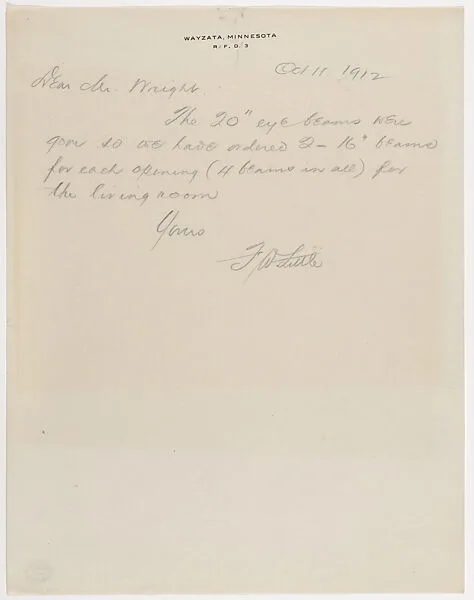 WAYZATA, MINNESOTA
R. F. D. 3
Oct 11 1912
Dear Mr. Wright.
The 20" eye beams were
gone so we have ordered 2 - 16" beams
for each opening (4 beams in all) for
the living room
Yours
F W Little